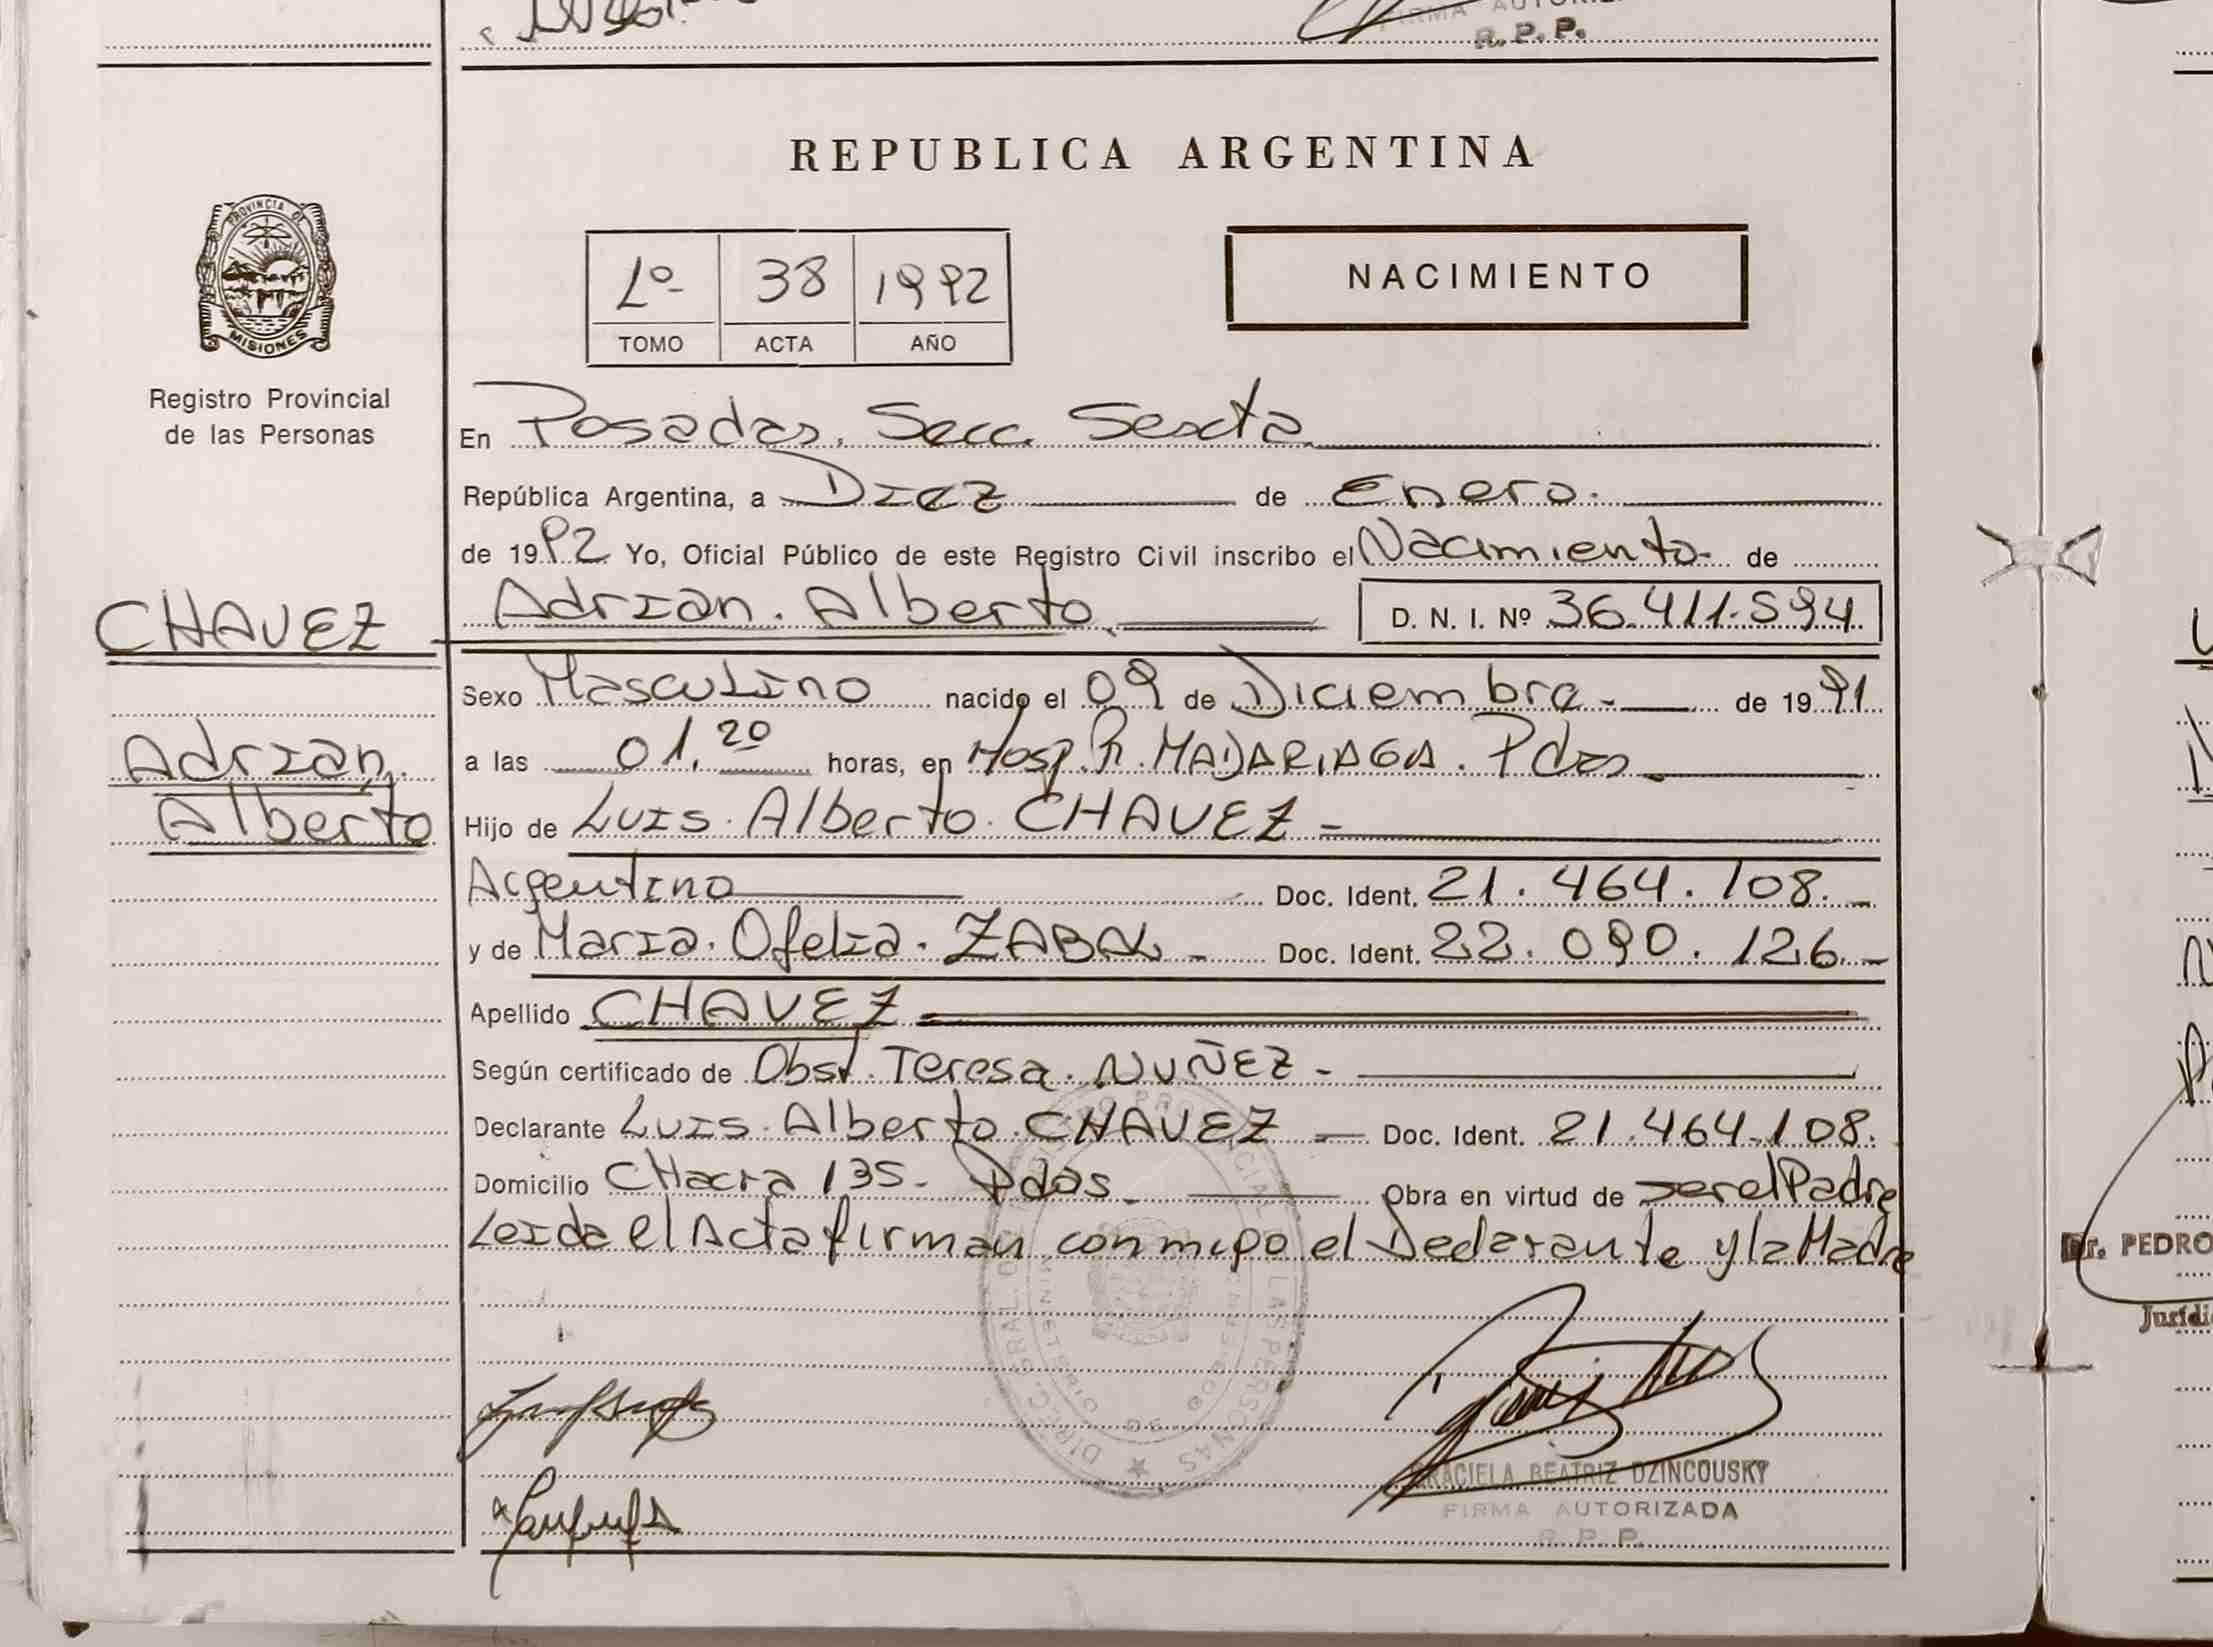 FIRMA AUTORIZ
R. P. P.
REPUBLICA ARGENTINA
PROVINCIA DE
MISIONES
Registro Provincial
de las Personas
Lº 38 1992
TOMO ACTA AÑO
NACIMIENTO
En Posadas. Secc. Sexta
República Argentina, a Diez de Enero.
de 1992 Yo, Oficial Público de este Registro Civil inscribo el Nacimiento de
Adrian. Alberto. D. N. I. Nº 36.411.594
CHAVEZ
Adrian.
Alberto
Sexo Masculino nacido el 09 de Diciembre de 1991
a las 01.20 horas, en Hosp. R. MADARIAGA. Pdas.
Hijo de Luis. Alberto. CHAVEZ -
Argentino Doc. Ident. 21.464.108.-
y de Maria. Ofelia. ZABAL - Doc. Ident. 22.090.126-
Apellido CHAVEZ
Según certificado de Obst. Teresa. NUÑEZ -
Declarante Luis. Alberto. CHAVEZ - Doc. Ident. 21.464.108.
Domicilio CHacra 135. Pdas. Obra en virtud de ser el Padre
Leida el Acta firman conmigo el Declarante y la Madre
DIREC. GRAL. DE REGISTRO PROVINCIAL DE LAS PERSONAS
MINISTERIO DE GOBIERNO
GRACIELA BEATRIZ DZINCOUSKY
FIRMA AUTORIZADA
R. P. P.
Dr. PEDRO
Jurídi